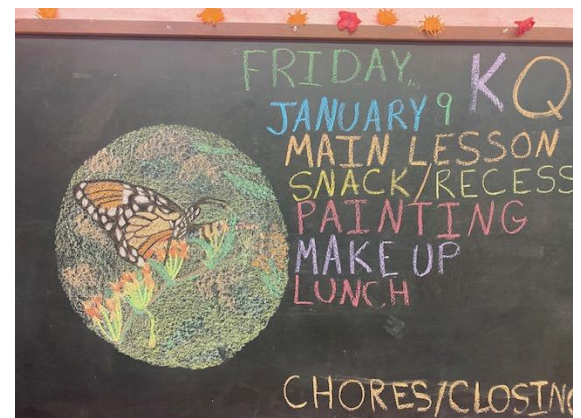 FRIDAY, KQ
JANUARY 9
MAIN LESSON
SNACK/RECESS
PAINTING
MAKE UP
LUNCH
CHORES/CLOSING